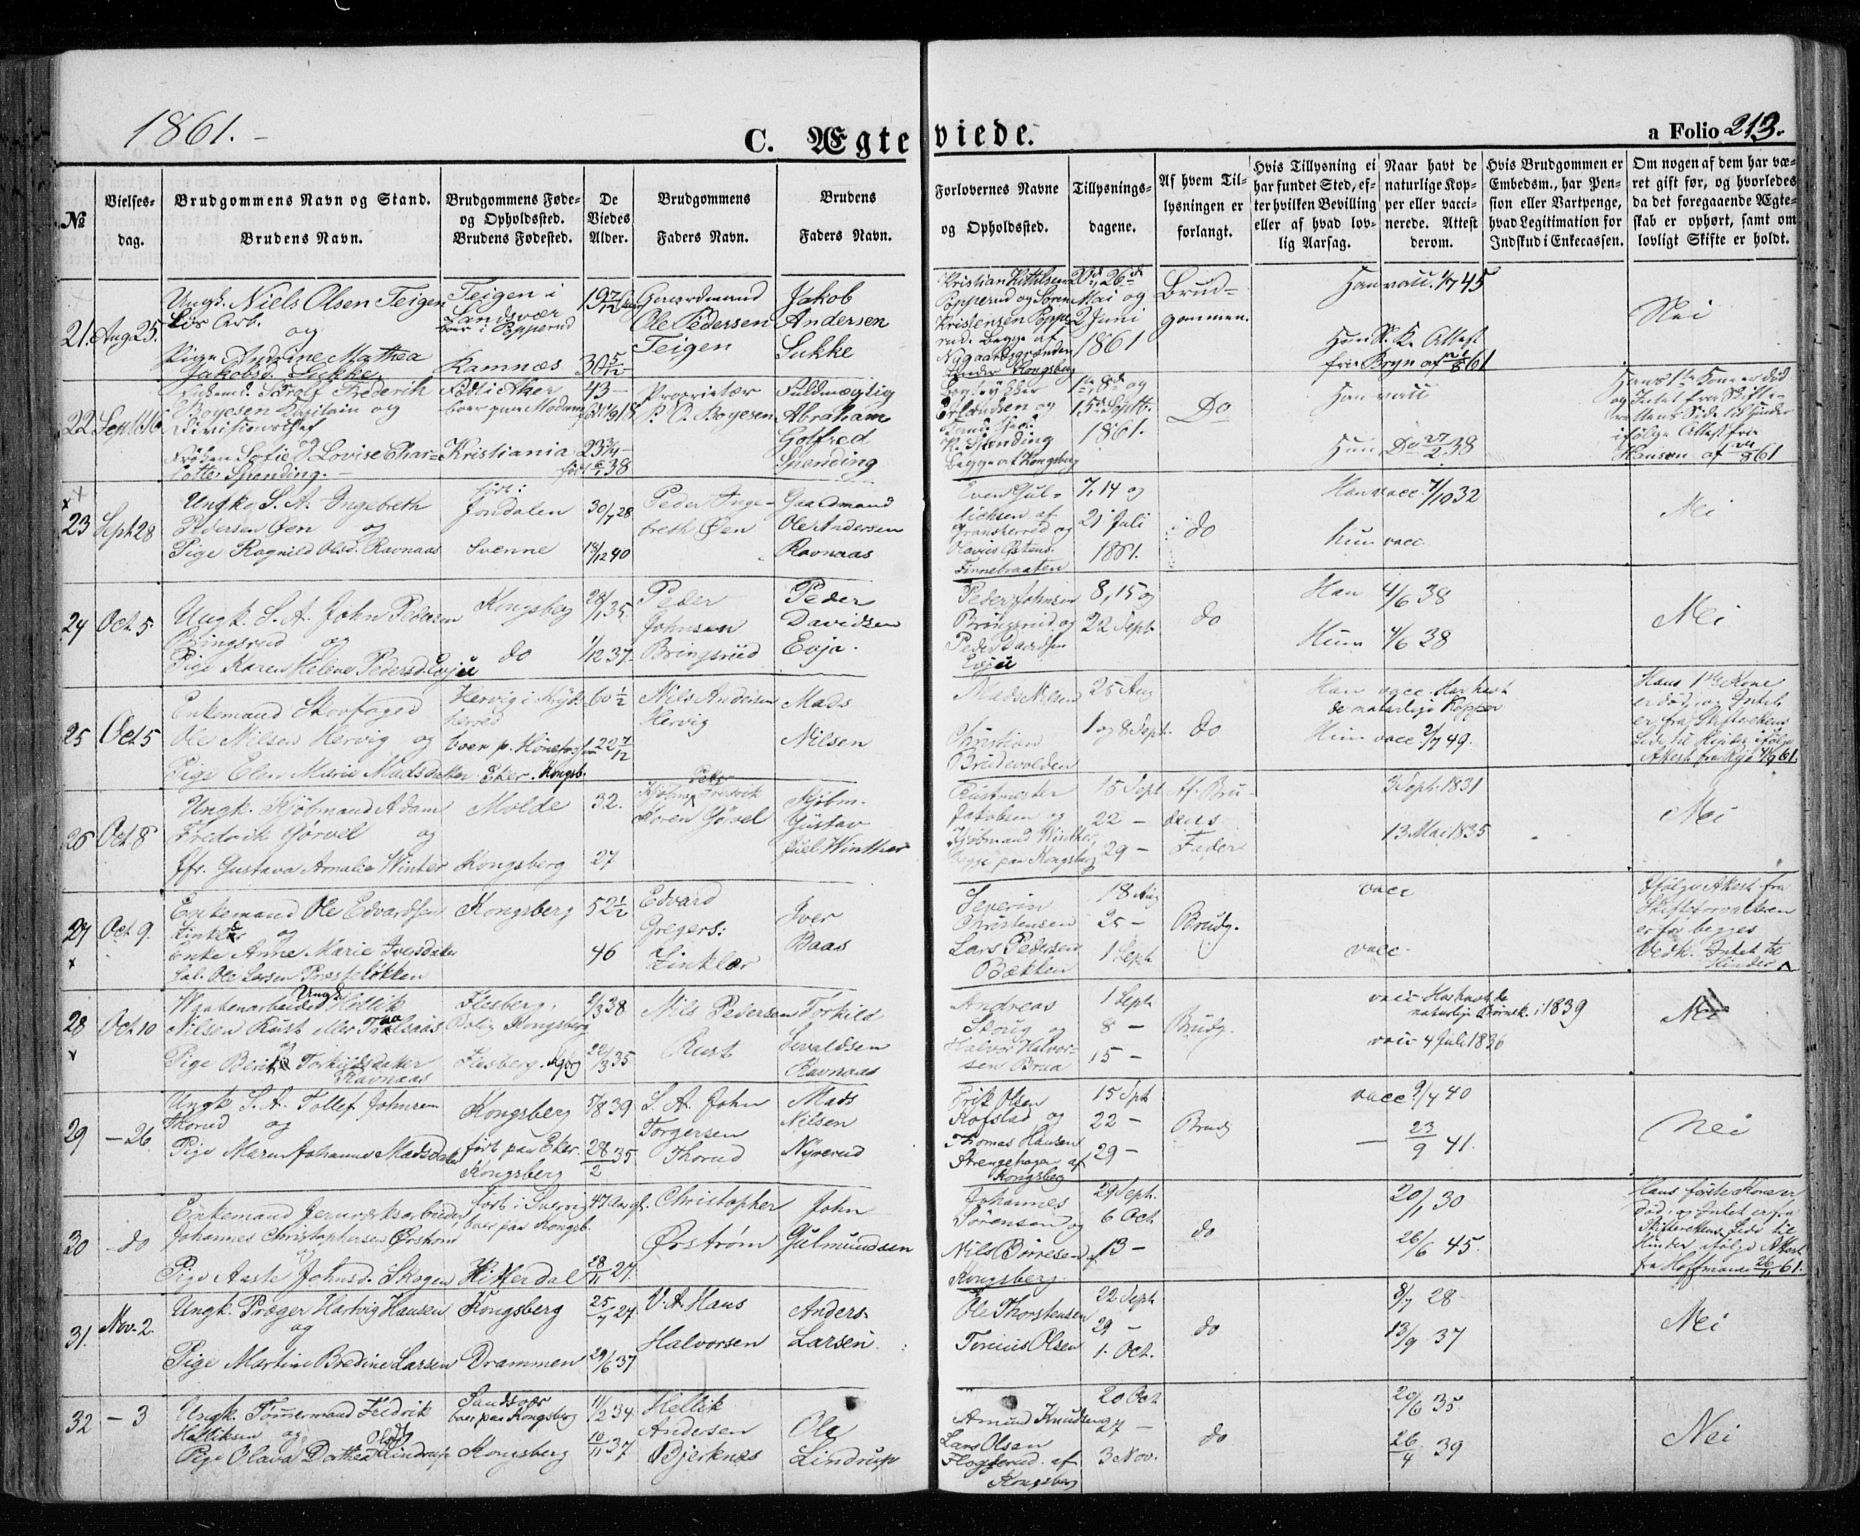 1861.-
C. Ægteviede.
a Folio 213.
№
Vielses-
dag.
Brudgommens Navn og Stand.
Brudens Navn.
Brudgommens Føde-
og Opholdssted.
Brudens Fødested.
De
Viedes
Alder.
Brudgommens
Faders Navn.
Brudens
Faders Navn.
Forlovernes Navne
og Opholdssted.
Tillysnings-
dagene.
Af hvem Til-
lysningen er
forlangt.
Hvis Tillysning ei
har fundet Sted, ef-
ter hvilken Bevilling
eller af hvad lov-
lig Aarsag.
Naar havt de
naturlige Kop-
per eller vacci-
nerede. Attest
derom.
Hvis Brudgommen er
Embedsm., har Pen-
sion eller Vartpenge,
hvad Legitimation for
Indskud i Enkecassen.
Om nogen af dem har væ-
ret gift før, og hvorledes
da det foregaaende Ægte-
skab er ophørt, samt om
lovligt Skifte er holdt.
21. Aug 25.
Ungk. Niels Olsen Teigen
Løs Arb.
og
Pige Andrine Mathea
Jakobsd. Sukke.
Teigen i
Sandsvær
boer i Popperud
Kamnæs
19 7/12
30 5/12
Gaardmand
Ole Pedersen
Teigen
Jakob
Andersen
Sukke
Kristian Kittilsen
Popperud og Søren
Kristensen Poppe-
rud. Begge af
Nygaardsgrænden
under Kongsberg
26de
Mai og
2 Juni
1861
Brud-
gommen.
Han vacc. 1/7 45
Hun S. K. Attest
fra Bryn af
Nei
22 Sept 16
Enkemd. Rolf Frederik
Boyesen Kapitain og
Divisionschef
Frøken Sofie Lovise Char-
lotte Spending.-
Født i Aker
boer paa Modum
Kristiania
43
23 3/4
Proprietær
P. C. Boyesen
Fuldmægtig
Abraham
Gotfred
Spending
Erlandsen og
Spending
begge af Kongsberg
1ste 8de og
15de Septb.
1861.
Do
Han vacc
Hun Do 27/2 38
Hans 1ste Kone er død
og Intet fra Skifte-
rettens Side til Hinder
ifølge Attest fra
Hansen af
23 Sept 28
Ungk. S. A. Ingebreth
Pedersen Øen og
Pige Ragnild Olsd. Ravnaas
født:
Jondalen
Svenne
30/7 28
18/12 40
Peder Inge-
breth Øen
Gaardmand
Ole Andersen
Ravnaas
Even Gul-
lichsen af
og
Finnebraaten
7, 14 og
21 Juli
1861.
do
Han vacc. 7/10 32
hun vacc.
Nei
24 Oct 5.
Ungk. S. A. John Pedersen
Bringsrud og
Pige Karen Helene Pedersd. Evju
Kongsberg
do
28/1 35
1/12 37.
Peder
Johnsen
Bringsrud
Peder
Davidsen
Evja.
Peder Johnsen
Bringsrud og
Peder Davidsen
Evju
8, 15 og
22 Sept.
do
Han 4/6 38
Hun 4/6 38
Nei
25 Oct 5
Enkemand Skovfoged
Ole Nilsen Hervig og
Pige Elen Marie Madsdatter
Hervig i Ryds-
Herred
boer p. Hønefossen
Eker. Kongsb.
60 1/2
22 7/12
Nils Andersen
Hervig
Mads
Nilsen
Mads Nilsen
Christian
Brudevolden
25 Aug
1 og 8 Sept.
do
Han vacc. Har havt
de naturlige Kopper
Hun vacc. 2/7 49.
Hans 1ste Kone
er død, og Intet
er fra Skifterettens
Side til Hinder ifølge
Attest fra
26 Oct 8
Ungk. Kjøbmand Adam
Fredrik Gørvel og
Jfr. Gustava Amalie Winter
Molde
Kongsberg
32.
27
Kjøbm. Peter Fredrik
Koren Gørvel
Kjøbm.
Gustav
Juel Winther
Rustmester
Jakobsen og
Kjøbmand Winther,
begge paa Kongsberg
15 Sept
22 —
29 —
Af Bru-
dens
Fader
3 Sept. 1831
13 Mai 1835
Nei
27 Oct 9.
Enkemand Ole Edvardsen
Zinkler og
Enke Anne Marie Iversdatter
Sal. Ole Larsen Præsteløkken
Kongsberg
52 1/2
46
Edvard
Gregers:
Zinkler
Iver
Baas
Severin
Christensen
Lars Pedersen
Bækken
18 Aug
25 —
1 Sept
Brudg.
vacc
vacc.
Ifølge Attest fra
Skifteforvalteren
er for begges
Vedk. Intet til
Hinder
28 Oct 10
Vaabenarbeider Ungk. Hellik
Nilsen Rust eller
og
Pige Torkildsdatter
Ravnaas
Flesberg.
Bolig Kongsberg
Flesberg.
2/3 38
22/3 35
Nils Pedersen
Rust
Torkild
Sevaldsen
Ravnaas
Andreas
Skrig og
Halvor Halvor-
sen Brua
1 Sept
8 —
15 —
Brudg.
vacc. Har havt de
naturlige Børnek. i 1839
vacc 4 Juli 1836
Nei
29 — 26
Ungk. S. A. Tollef Johnsen
Thorud og
Pige Maren Johanne Madsdatter
Kongsberg
født paa Eker.
Kongsberg
5/8 39
28/2 35.
S. A. John
Torgersen
Thorud
Mads
Nilsen
Nyrerud
Erik Olsen
Kofstad og
Thomas Hansen
Strengehagen af
Kongsberg
15 Sept
22 —
29 —
Brudg
vacc 9/7 40
— 23/9 41.
Nei
30 do
Enkemand Jernværksarbeider
Johannes Christophersen Ørstrøm
og
Pige Aaste Johnsd. Skogen
født i Sverig
boer paa Kongsb.
Hitterdal
47 Aar gl.
28/11 27.
Christopher
Ørstrøm
John
Gulmundsen
Johannes
Sørensen og
Nils Børresen af
Kongsberg
29 Sept.
6 Oct.
13 —
do
20/1 30
26/6 45.
Hans første Kone er
død, og Intet er fra
Skifterettens Side til
Hinder ifølge Attest
fra Hoffmand
31. Nov. 2.
Ungk. Præger Hartvig Hansen
og
Pige Martine Bredine Larsen
Kongsberg
Drammen
25/7 27
29/6 37
V. A. Hans
Halvorsen
Anders
Larsen.
Ole Thorstensen
Tonius Olsen
22 Sept
29 —
1. Oct.
do
3/7 28
13/9 37
Nei
32 — 3
Ungk. Tømmermand Fredrik
Helliksen og
Pige Olava Dorthea Olsd. Lindrup
Sandsvær
boer paa Kongsberg
Kongsberg
11/2 34
10/11 37
Hellik
Andersen
Bjerknes
Ole
Lindrup
Amund Knudsen
Lars Olsen
Floggerud af
Kongsberg
20 Oct
27 —
3 Nov.
do
20/6 35
26/4 39
Nei